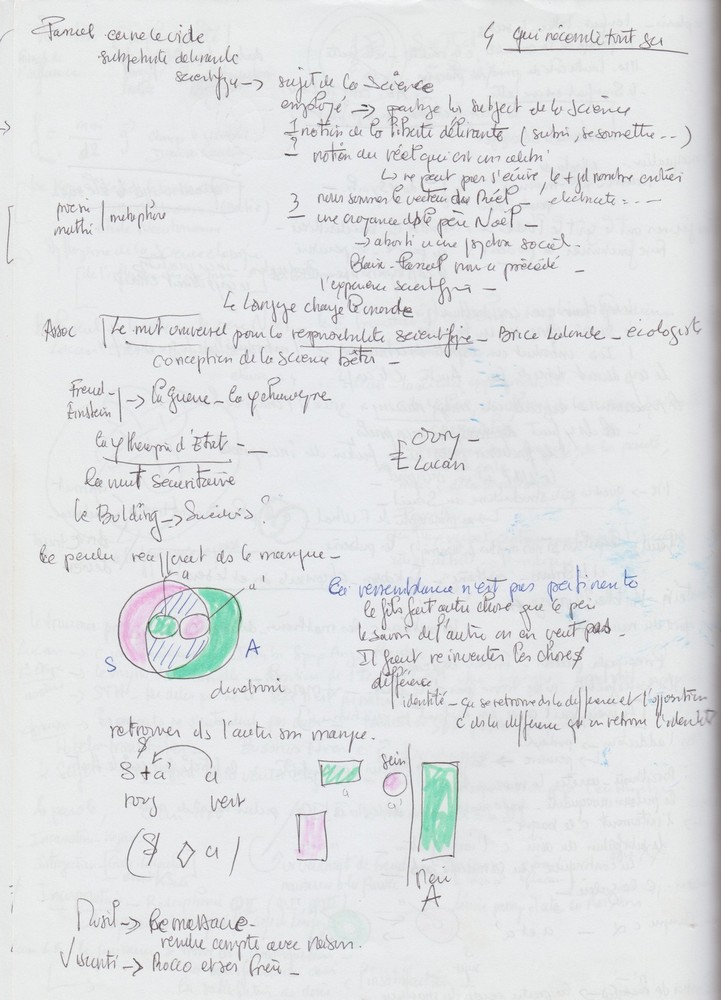 Pascal cerne le vide
qui nécessite tout su
subjectivité délirante
scientifique → sujet de la Science
employé → partage les subject de la Science
1 notion de la liberté délirante (subir, se soumettre ...)
2 notion du réel qui est un
↳ ne peut pas s'écrire, le + gd nombre entier
3 nous sommes le vecteur du Réel - électricité ...
métaphore
- une croyance ds le père Noël -
→ aboutit à une psychose sociale -
Blaise Pascal nous a précédé -
l'expérience scientifique -
Le langage change le monde
Assoc Le mvt universel pour la responsabilité scientifique - Brice Lalonde - écologiste
conception de la Science
Freud - Einstein → la guerre -
la ψ thérapie d'Etat -
Oury -
Lacan
La nuit sécuritaire
Le Building → Suicides ?
Le perdu réapparait ds le manque -
a
a'
S A
La ressemblance n'est pas pertinente
le fils fait autre chose que le père
le savoir de l'autre on en veut pas -
Il faut réinventer les choses
différence
identité - ça se retrouve ds la différence et l'opposition
c ds la différence qu'on retrouve l'identité
retrouver ds l'autre son manque.
$
S + a' a
rose vert
($ ◇ a)
a
sein
a'
A
Musil → Le massacre -
rendre compte avec raison.
Visconti → Rocco et ses frères -